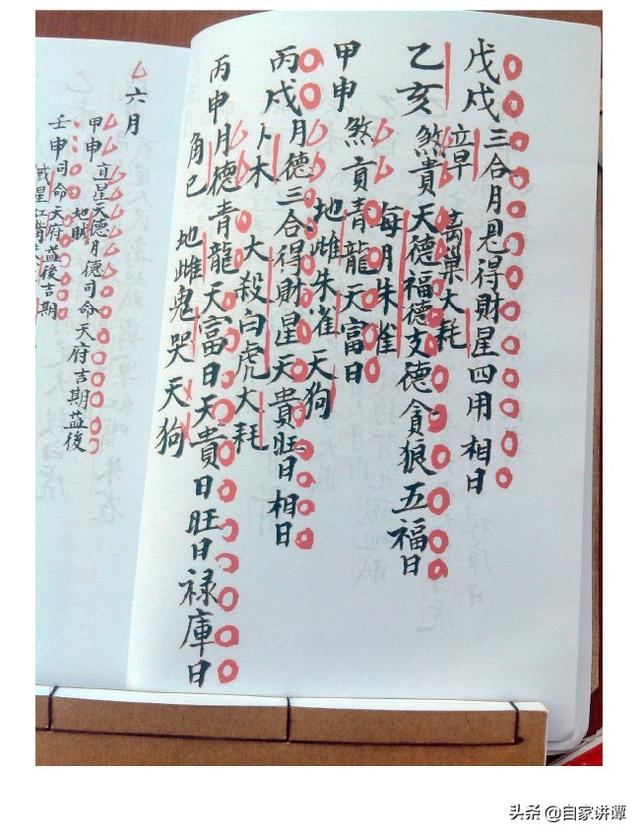 戊戌 三合月恩得財星四用相日
章 离巢大耗
乙亥 煞貴天德福德支德貪狼五福日
每月朱雀
甲申 煞貢青龍天富日
地雌朱雀天狗
丙戌 月德三合得財星天貴旺日相日
卜木 大殺白虎大耗
丙申月德青龍天富日天貴日旺日禄庫日
角已 地雌鬼哭天狗
六月
甲申 直星天德月德司命天府吉期益後
地賊
壬申司命天府益後吉期
頭条 @自家讲谭